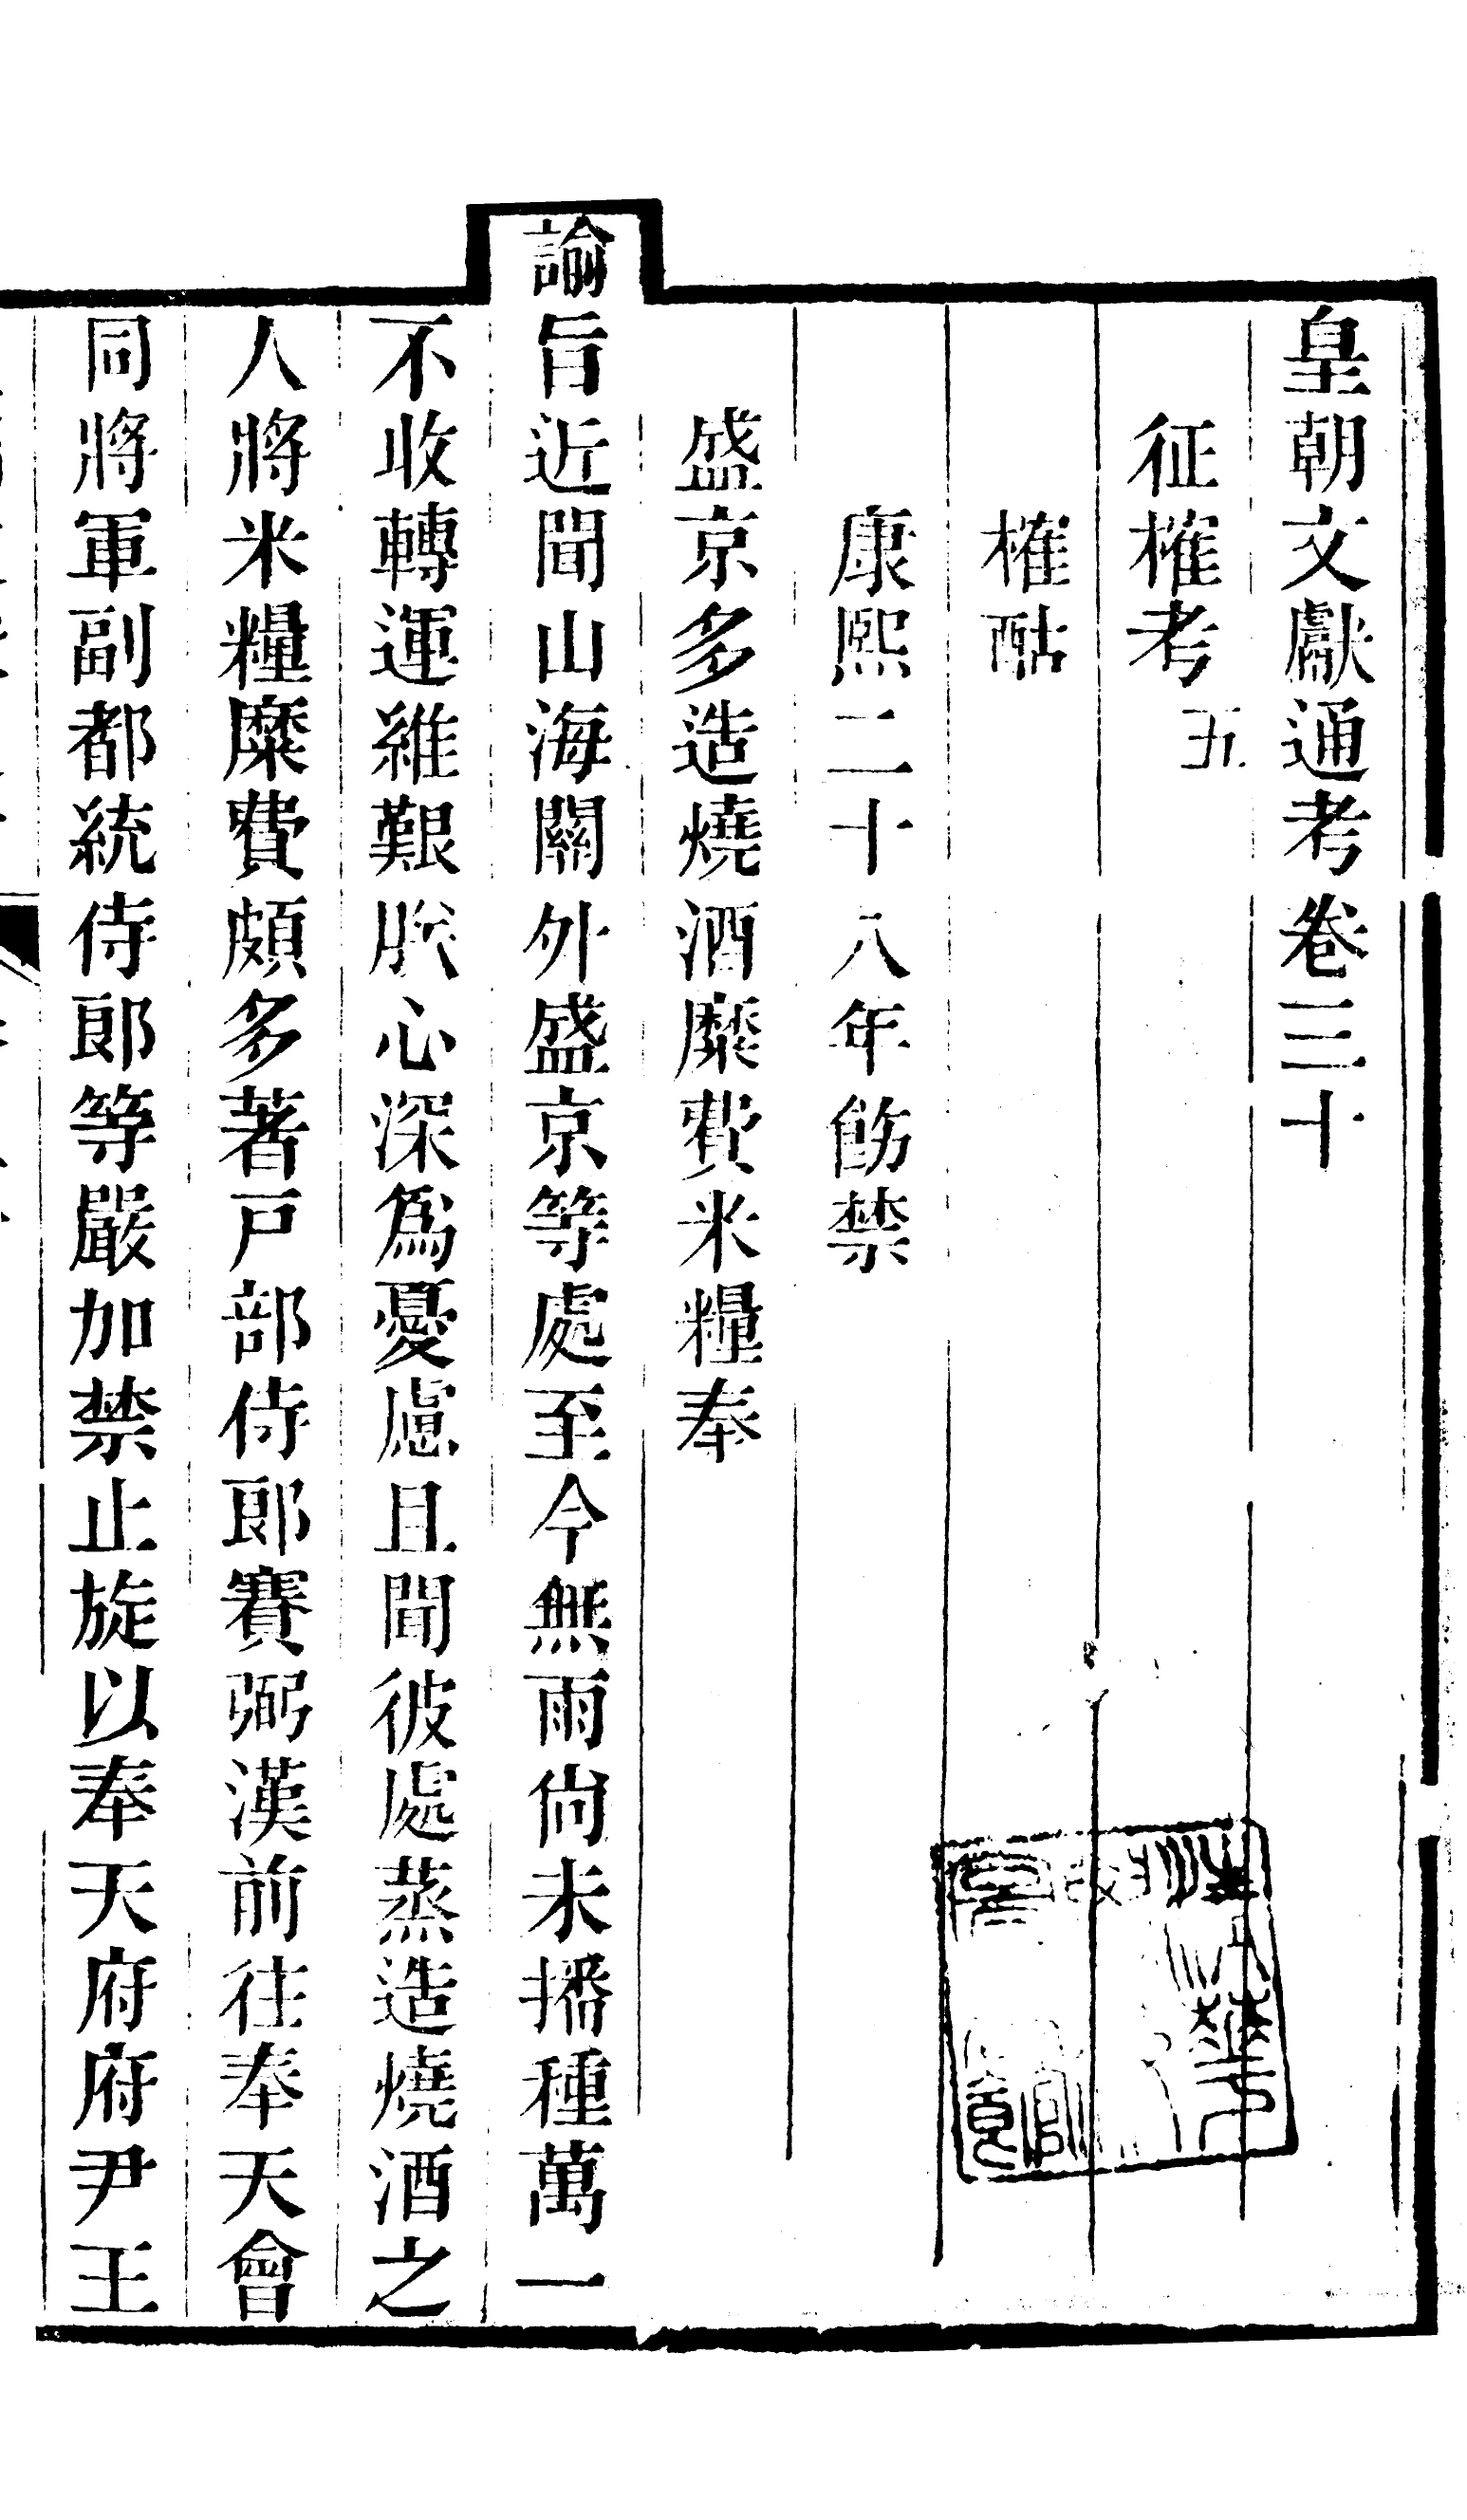 皇朝文獻通考卷三十
征榷考五
榷酤
康熙二十八年飭禁
盛京多造燒酒糜費米糧奉
諭旨近聞山海關外盛京等處至今無雨尚未播種萬一
不收轉運維艱朕心深爲憂慮且聞彼處蒸造燒酒之
人將米糧糜費頗多著戸部侍郎賽弼漢前往奉天會
同將軍副都統侍郎等嚴加禁止旋以奉天府府尹王